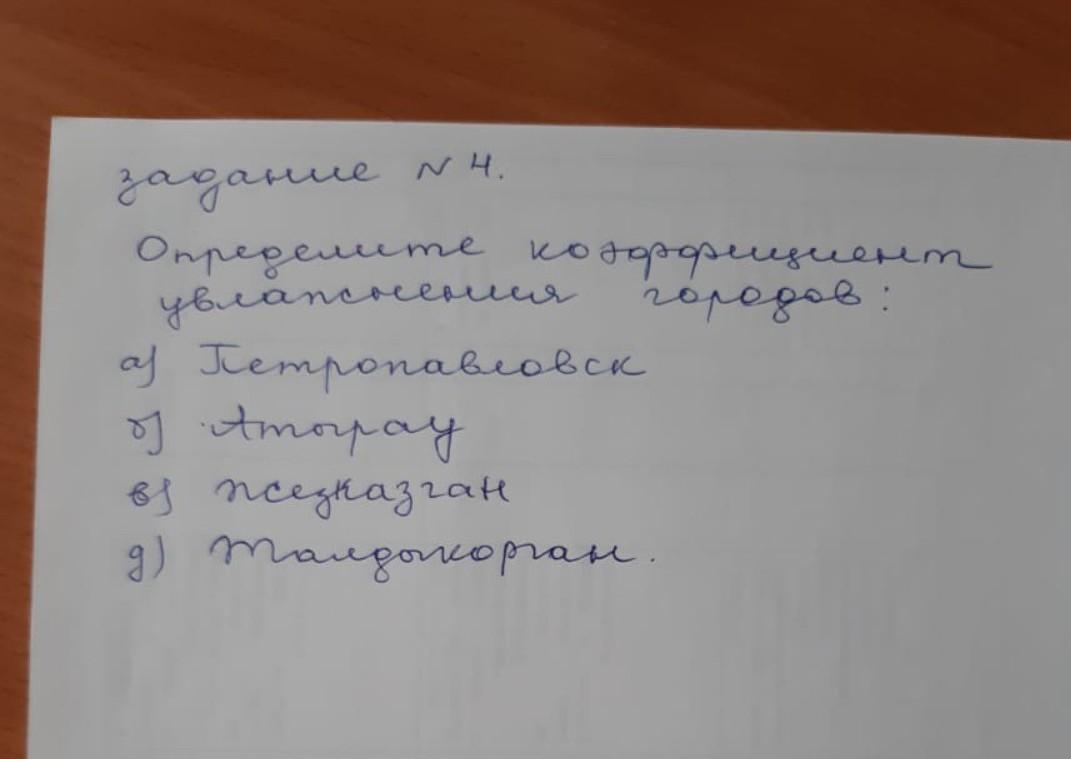 задание N 4.
Определите коэффициент
увлажнения городов:
а) Петропавловск
б) Атырау
в) Жезказган
д) Талдыкорган.